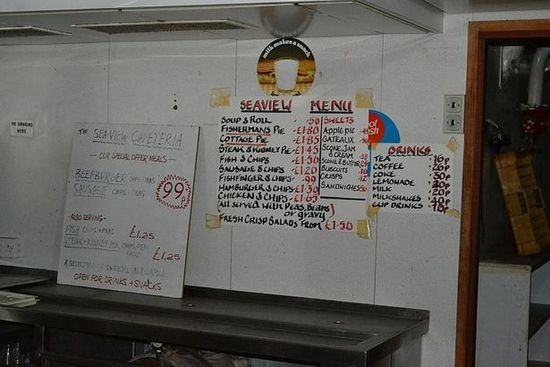 milk makes a snack
NO SMOKING
HERE
THE SEAVIEW CAFETERIA
— OUR SPECIAL OFFER MEALS —
BEEFBURGER CHIPS + PEAS
SAUSAGE CHIPS + PEAS
99
ALSO SERVING -
FISH CHIPS + PEAS £1.25
STEAK + KIDNEY PIE, CHIPS, PEAS
£1.25
OPEN FOR DRINKS + SNACKS
SEAVIEW MENU
SOUP & ROLL .50
FISHERMANS PIE £1.80
COTTAGE PIE £1.85
STEAK & KIDNEY PIE £1.45
FISH & CHIPS £1.50
SAUSAGE & CHIPS £1.20
FISHFINGER & CHIPS .90
HAMBURGER & CHIPS £1.30
CHICKEN & CHIPS £1.65
ALL SERVED WITH PEAS, BEANS
OR GRAVY
FRESH CRISP SALADS FROM £1.50
SWEETS
APPLE PIE
GATEAUX
SCONE, JAM
& CREAM
SCONE & BUTTER
BISCUITS
CRISPS
SANDWICHES
DRINKS
TEA 16p
COFFEE
COKE
LEMONADE
MILK
MILKSHAKES
CUP DRINKS